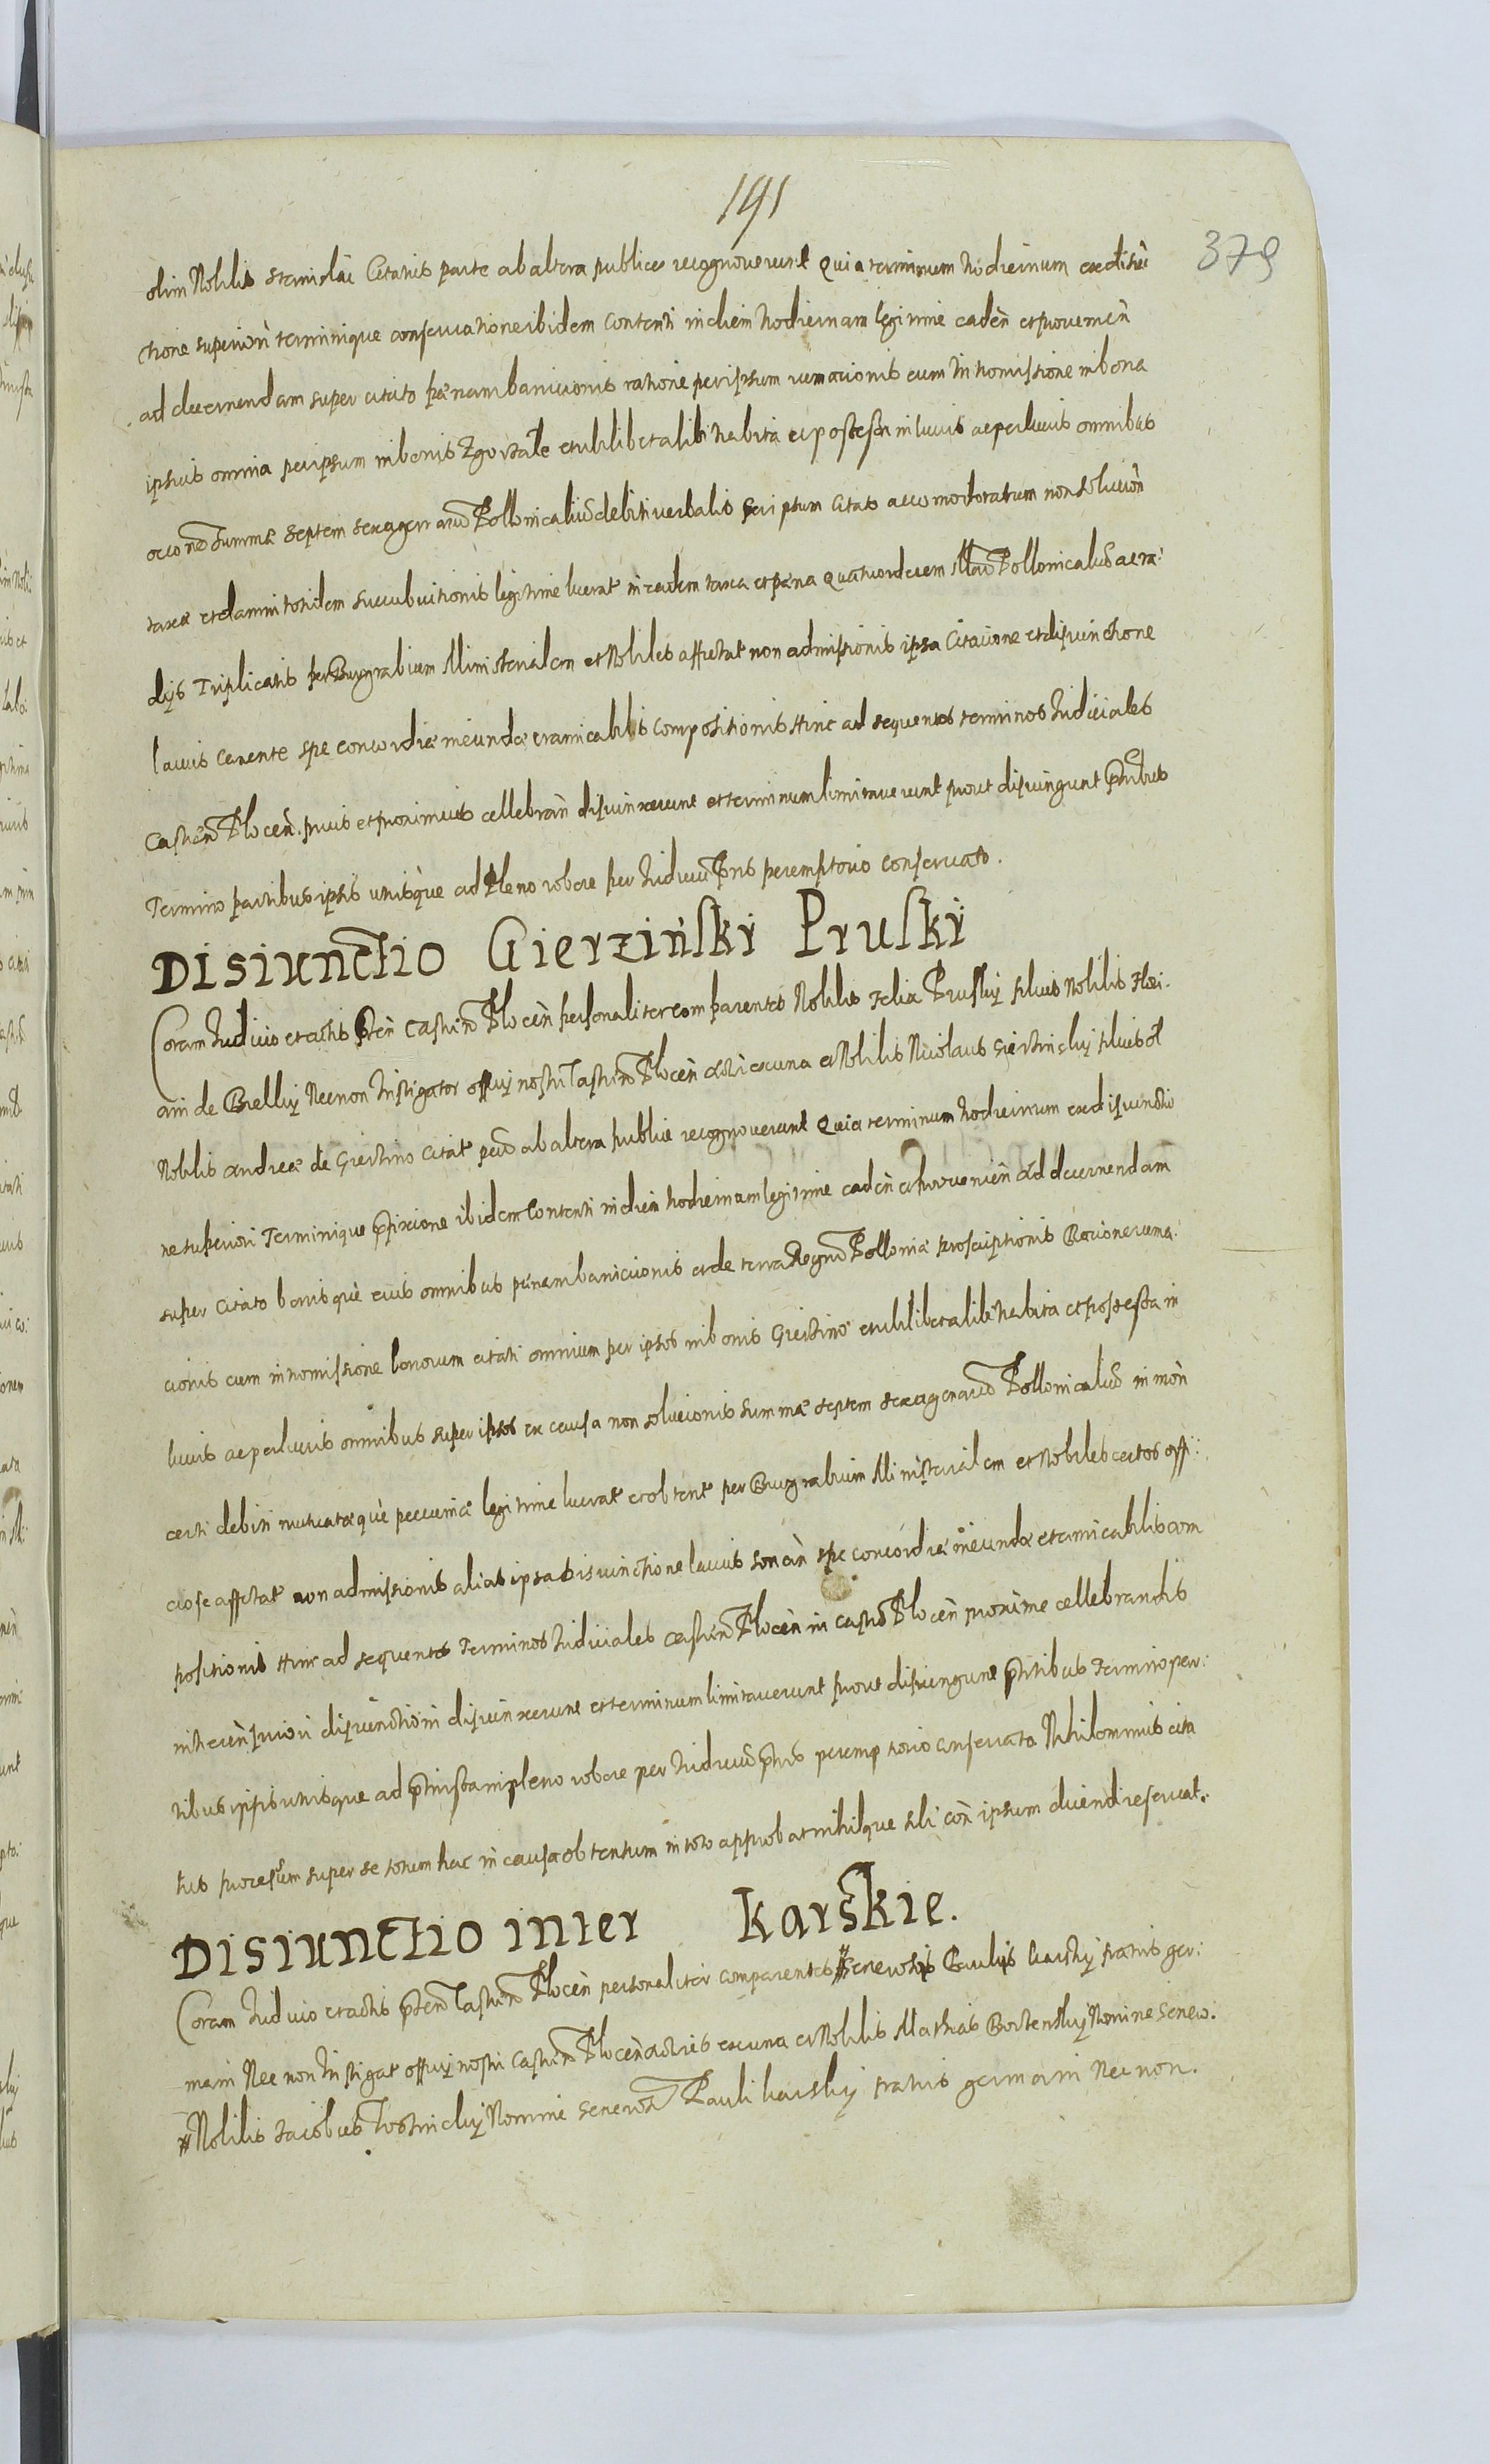 191
379
olim Nobilis Stanislai Citatis parte ab altera publice recognoverunt Quia terminum hodiernum ex disiu
nctione superiori terminique conservatione ibidem Contenti in diem hodiernam legitime caden et provenien
ad decernendam super citato pænam bannicionis ratione per ipsum cum in tromissione in bona
ipsius omnia per ipsum in bonis et ubilibet alibi habita et possessa in lucris ac perlucris omnibus
summæ Septem sexagenarum Pollonicaliu debiti verbalis per ipsum Citato accomodatarum non solucion
taxæ et damni totidem succubuitionis legitime lucrat in eadem taxa et pæna Quatuordecem Marc Pollonicaliu ac ra:
dys Triplicatis per Burgrabium Ministerialem et Nobiles affectat non admissionis ipsa Citatione et disiunctione
lacius canente spe concordiæ ineundæ et amicabilis compositionis Hinc ad sequentes terminos Iudiciales
Castren Plocen. prius et proximius cellebran disiunxerunt et terminum limitaverunt prout disiungunt Partibus
Termino partibus ipsis utrisque ad pleno robore per Iudicium Pns peremptorio conservato.
DISIUNCTIO Gierziński Pruski
Coram Iudicio et actis Pten Castren Plocen personaliter comparentes Nobilis Felix Pruski filius Nobilis Flori:
ani de Brelky Necnon Instigator officy nostri Castren Plocen actores ex una et Nobilis Nicolaus Gierzinsky filius ol
Nobilis Andreæ de Gierzino Citat parte ab altera publice recognoverunt Quia terminum hodiernum ex disiunctio
ne superiori Terminique pfixione ibidem Contenti in diem hodiernam legitime caden et provenien Ad decernendam
super Citato bonisque eius omnibus pænam bannicionis et de terra Regno Polloniæ proscriptionis Racione rema:
cionis cum intromissione bonorum citati omnium per ipsos in bonis Gierzino et ubilibet alibi habita et possessa in
lucris ac perlucris omnibus super ipsos ex causa non solucionis summæ septem sexagenarum Pollonicaliu in mon
certi debiti mutuatæque pecuniæ legitime lucrat et obtent per Burgrabium Ministerialem et Nobiles certos offi:
ciose affectat non admissionis alias ipsa Disiunctione lacius sonan spe concordiæ ineundæ et amicabilis com
positionis Hinc ad sequentes Terminos Iudiciales Castren Plocen in castro Plocen proxime cellebrandis
priori disiunctioni disiunxerunt et terminum limitaverunt prout disiungunt Partibus termino par:
tibus ipsis utrisque ad pleno robore per Iudicium pns peremptorio conservato Nihilominus cita
tus processum super se totum hac in causa obtentum in toto approbat nihilque sibi con ipsum dicendi reservat.
DISIUNCTIO inter Karskie.
Coram Iudicio et actis pten Castren Plocen personaliter comparentes # Generosis Paulis Karsky fratris ger:
mani Nec non Instigat officy nostri Castren Plocen actores ex una et Nobilis Mathias Nomine Genero:
# Nobilis Iacobus Nomine Generosi Pauli Karsky fratris germani Nec non.